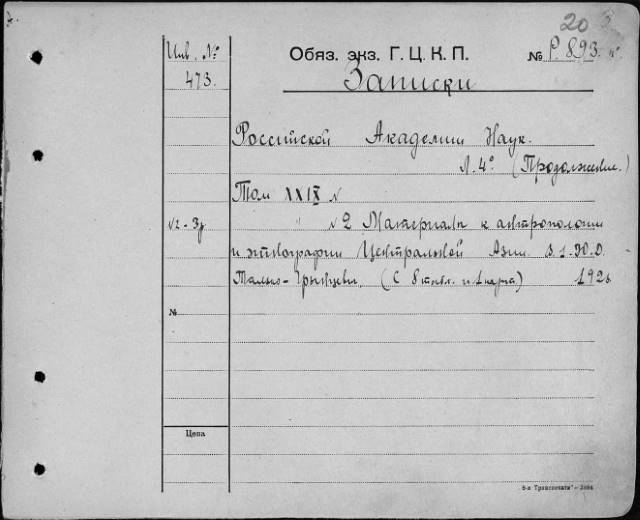 20
Инв. №
Обяз. экз. Г. Ц. К. П.
№ Р. 893.
473.
Записки
Российской Академии Наук.
Л. 4° (Продолжение.)
Том XXIX №
№2 - 3р
" №2 Материалы к антропологии
и этнографии Центральной Азии. В. 1. Ю. Д.
Талько-Грынцевич. (С 8 табл. и 1 карт.) 1926
№
Цена